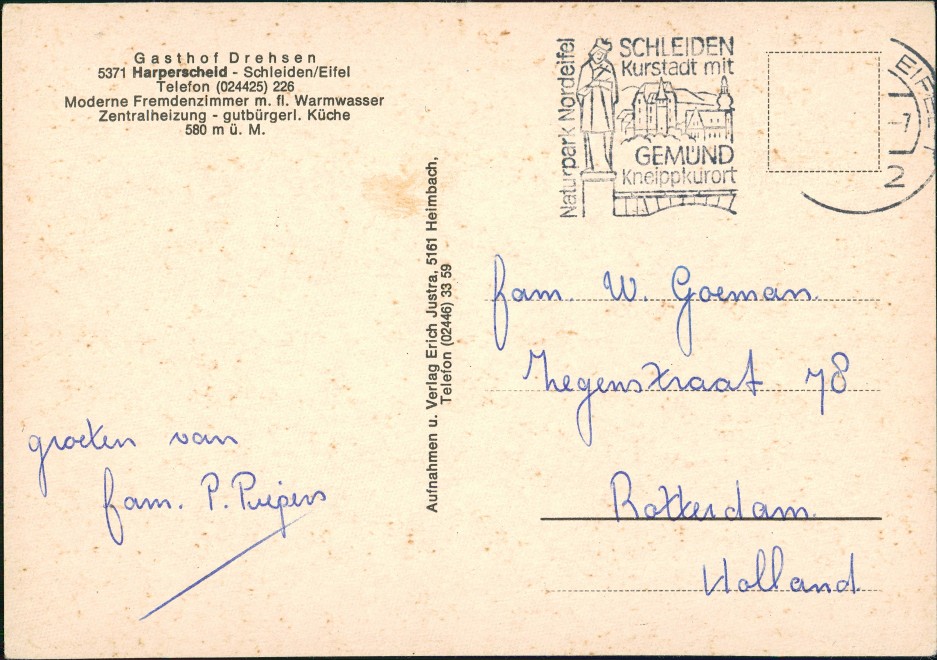 Gasthof Drehsen
5371 Harperscheid - Schleiden/Eifel
Telefon (024425) 226
Moderne Fremdenzimmer m. fl. Warmwasser
Zentralheizung - gutbürgerl. Küche
580 m ü. M.
groeten van
fam. P. Puijpers
Aufnahmen u. Verlag Erich Justra, 5161 Heimbach,
Telefon (02446) 33 59
Naturpark Nordeifel
SCHLEIDEN
Kurstadt mit
GEMÜND
Kneippkurort
EIFEL 1
-7
2
fam. W. Goeman.
Zegenstraat 78
Rotterdam.
Holland.